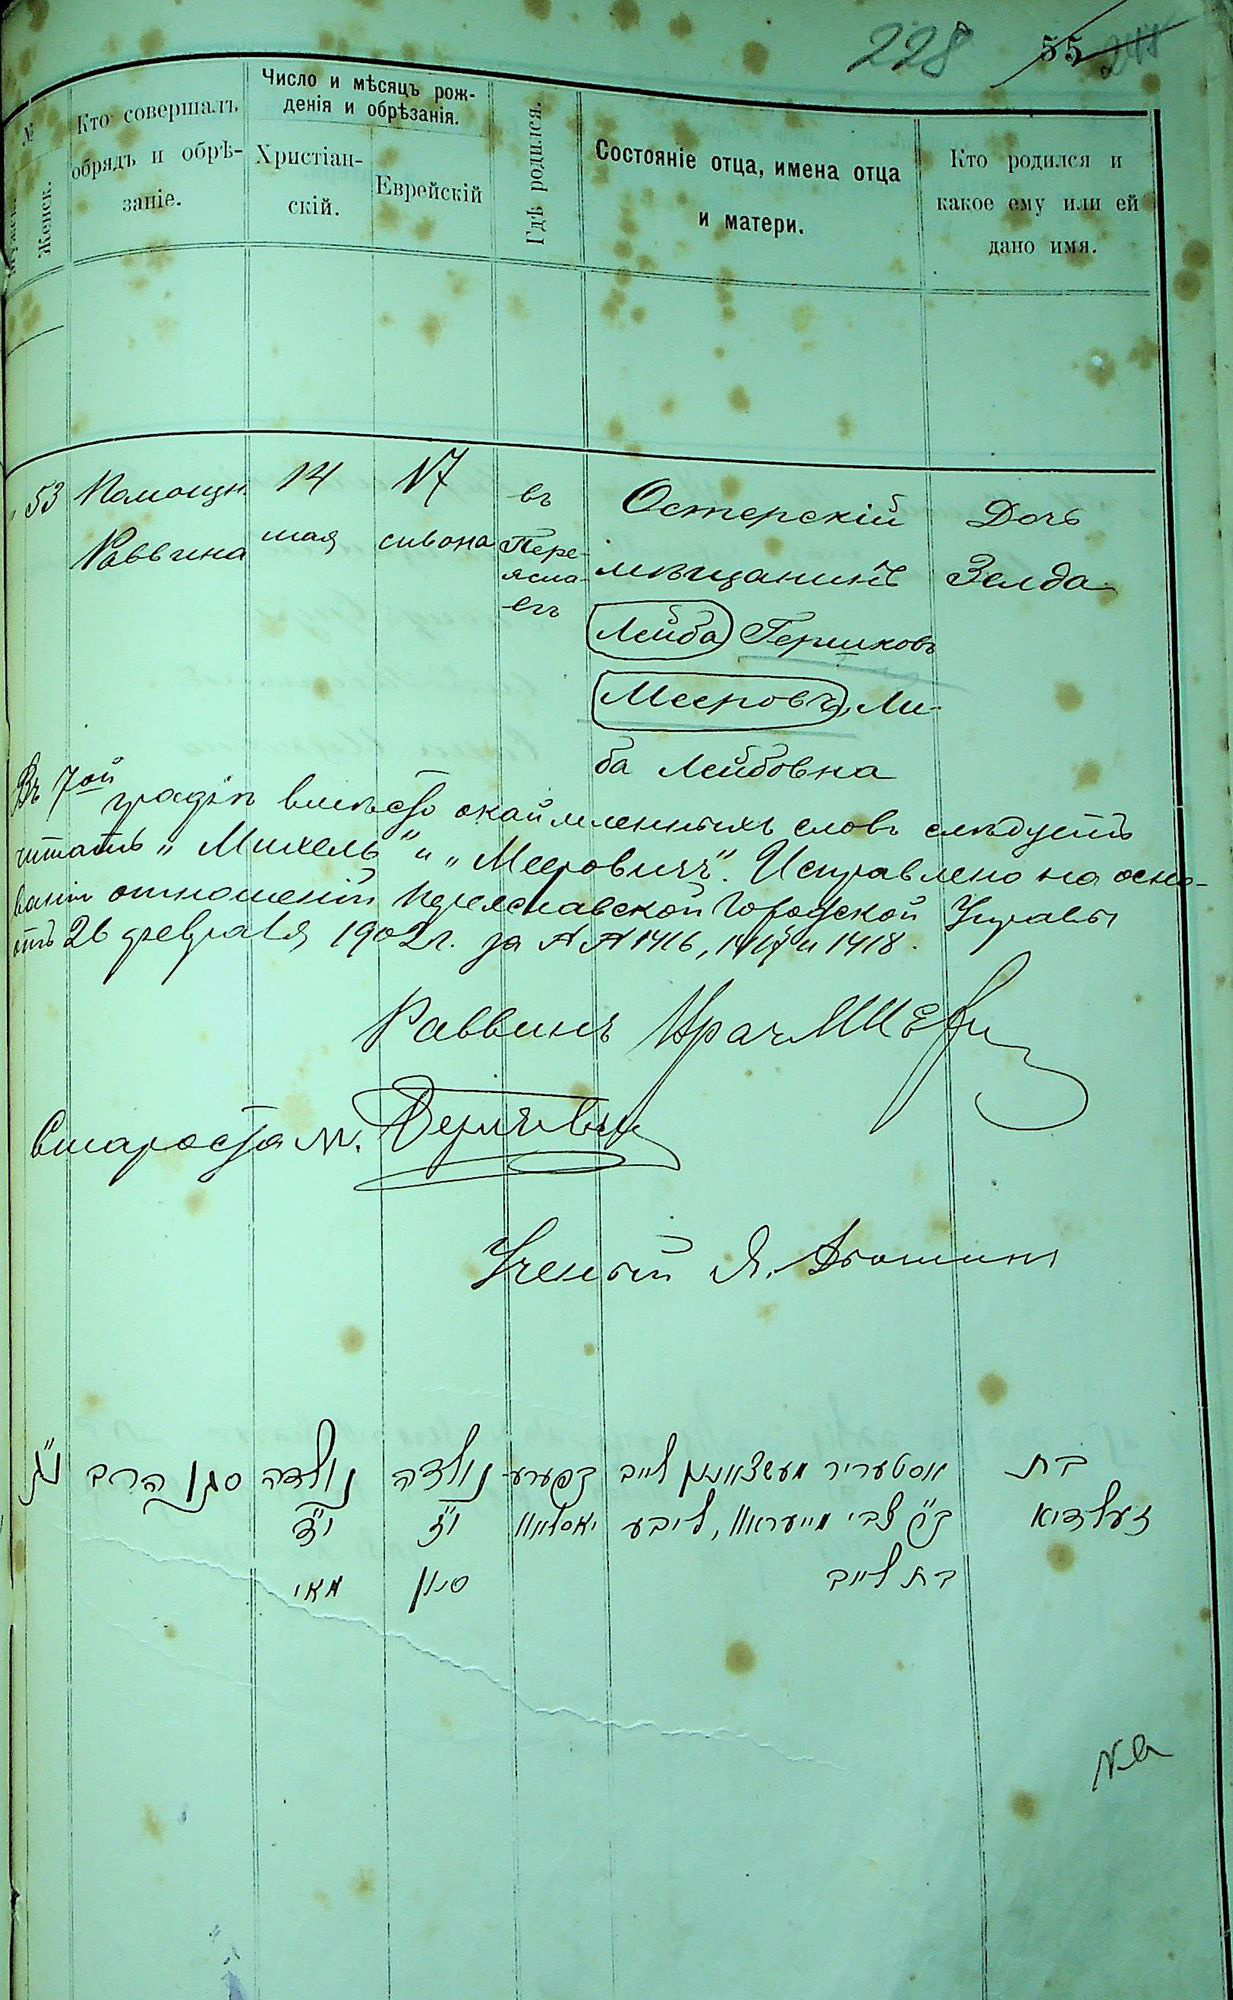 228 55
№
Женск.
Кто совершалъ
обрядъ и обрѣ-
заніе.
Число и мѣсяцъ рож-
денія и обрѣзанія.
Христіан-
скій.
Еврейскій
Гдѣ родился.
Состояніе отца, имена отца
и матери.
Кто родился и
какое ему или ей
дано имя.
53
Помощн.
Раввина
14
мая
17
сивона
въ
Пере-
ясла-
въ
Остерскій
мѣщанинъ
Лейба Гершковъ
Мееровъ, Ли-
ба Лейбовна
Дочь
Зелда
Въ 7ой графѣ вмѣсто окаймленныхъ словъ слѣдуетъ
читать „Михель“ и „Мееровичъ“. Исправлено на осно-
ваніи отношеній Переяславской Городской Управы
отъ 26 февраля 1902 г. за №№ 1416, 1417 и 1418.
Раввинъ Врач
Староста М.
Ученый Я.
נ"ג
סגן הרב
נולדה
י"ד
מאי
נולדה
י"ז
סיון
בפערע
יאסלאוו
אסטעריר מעשצאנין לייב
ב"ר צבי מייעראוו, ליבע
בת לייב
בת
זעלדא